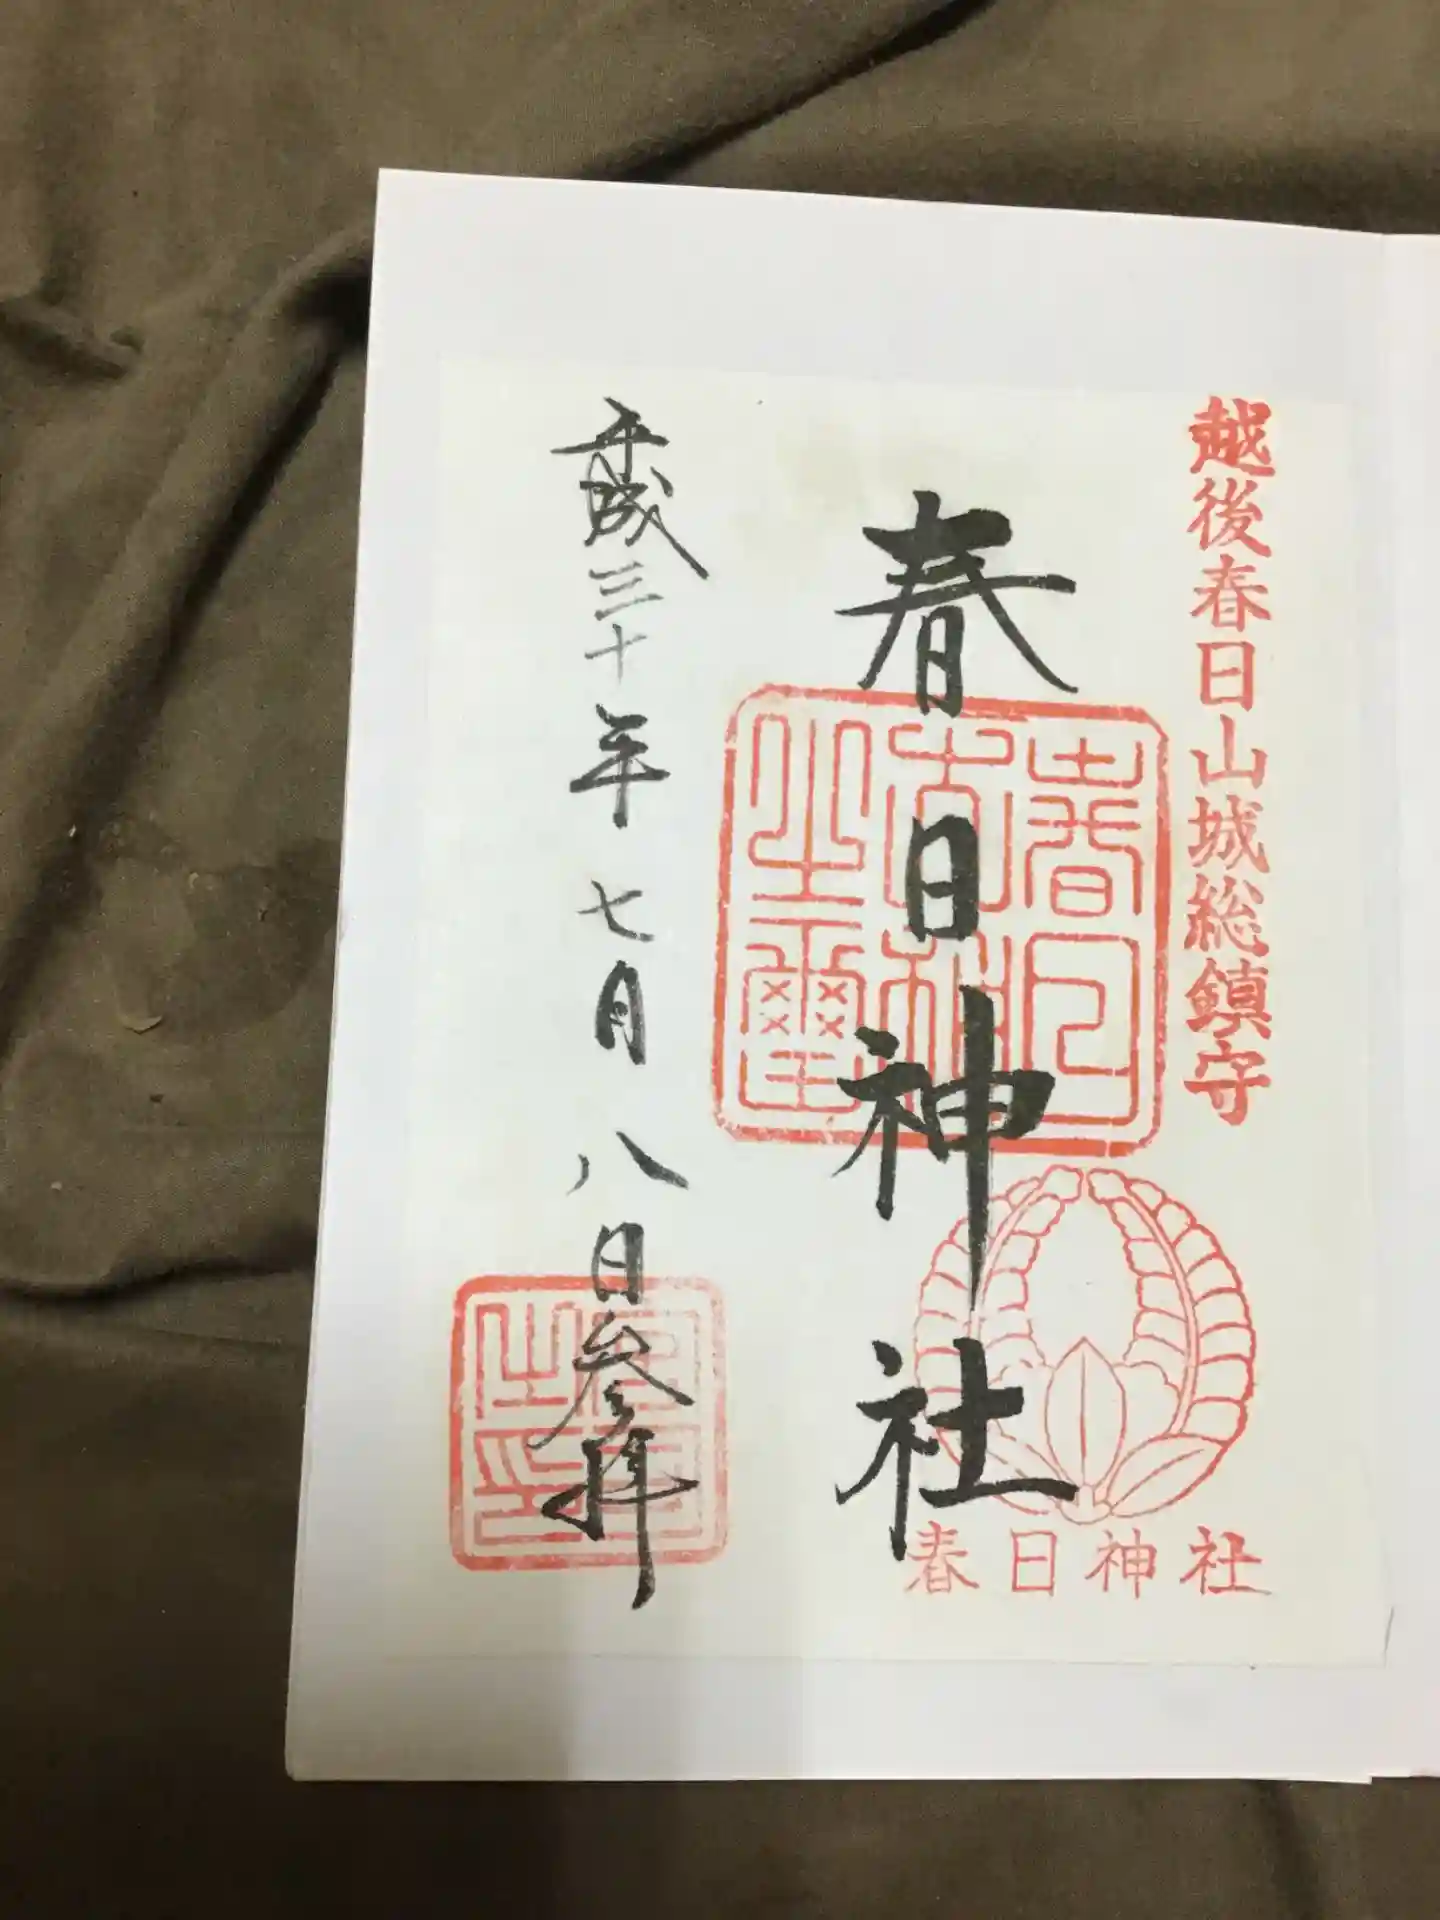 越後春日山城総鎮守
春日神社
春日神社
平成三十年七月八日参拝